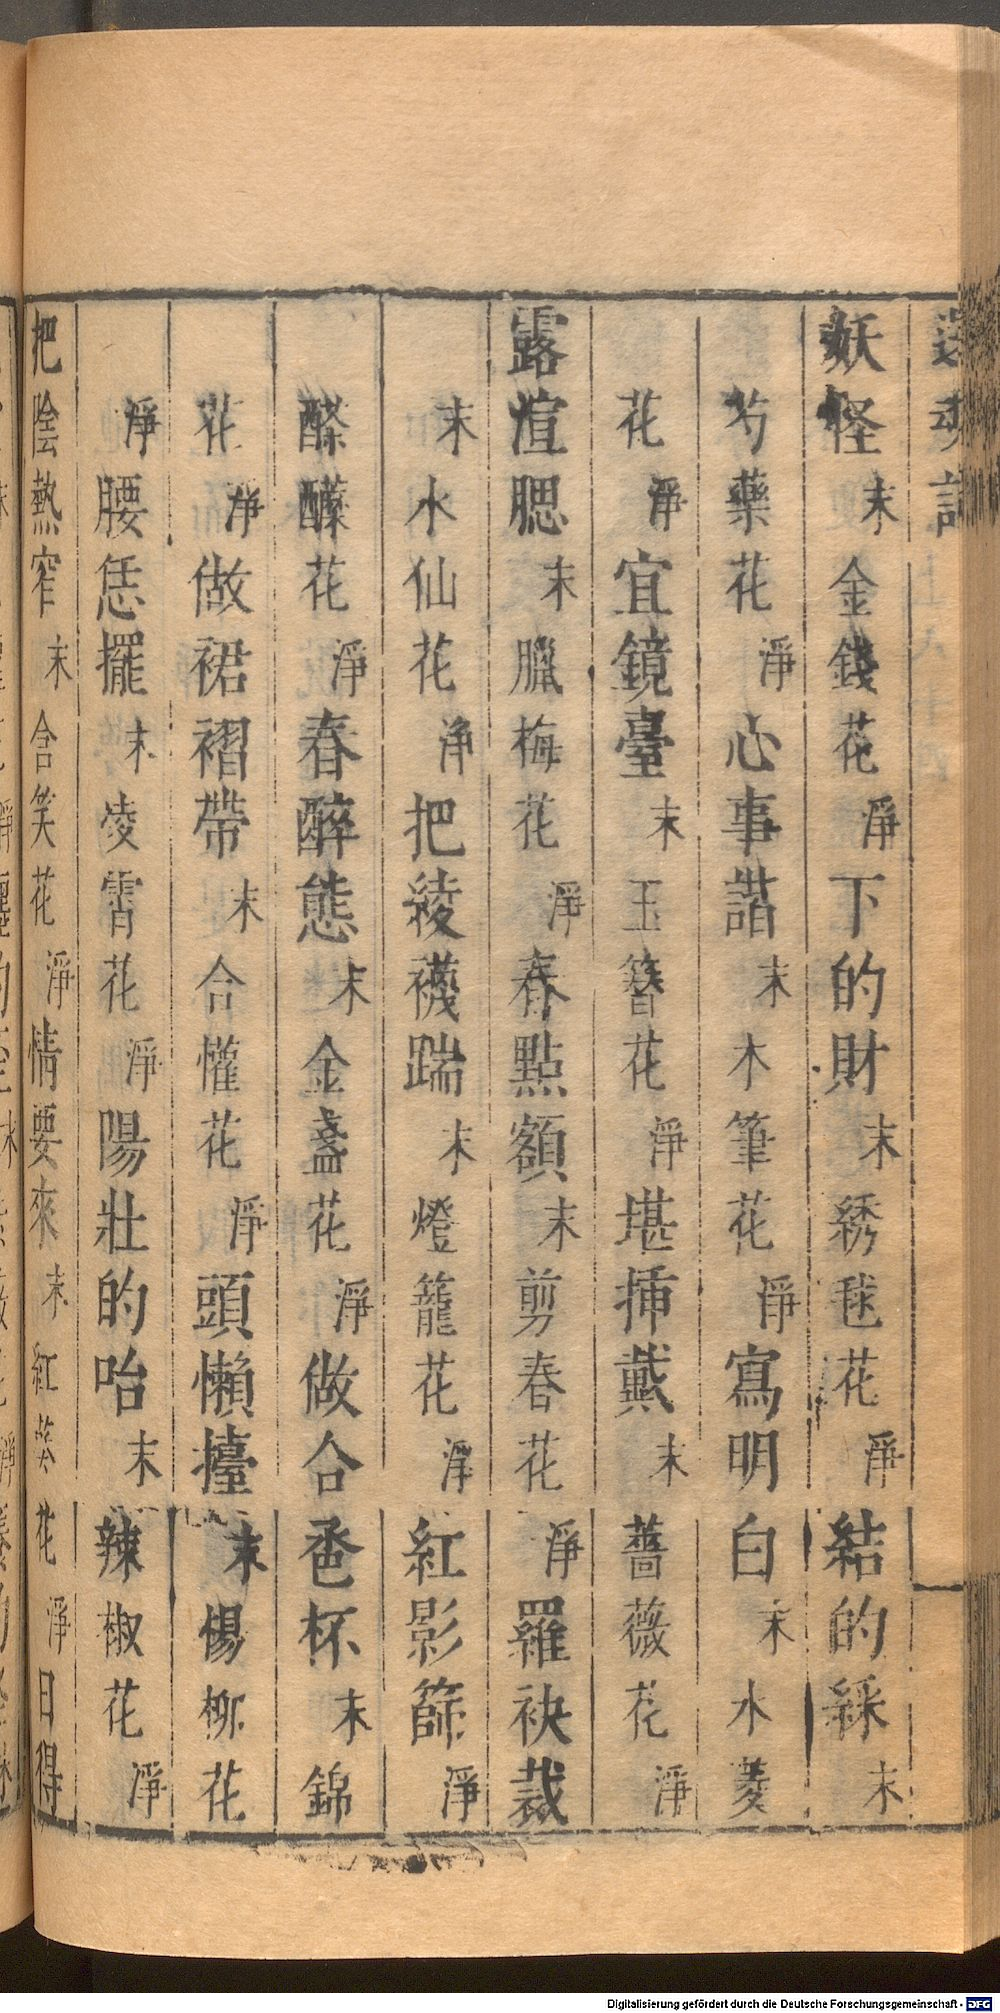 還魂記
妖怪末金錢花淨下的財末綉毬花淨結的綵末
芍藥花淨心事諧末木筆花淨寫明白末水菱
花淨宜鏡臺末玉簪花淨堪揷戴末薔薇花淨
露渲腮末臘梅花淨春點額末剪春花淨羅袂裁
末水仙花淨把綾襪踹末燈籠花淨紅影篩淨
醾花淨春醉態末金盞花淨做合卺杯末錦
花淨做裙褶帶末合懽花淨頭懶擡末楊柳花
淨腰恁擺末凌霄花淨陽壯的咍末辣椒花淨
把陰熱窄末含笑花淨情要來末紅葵花淨日得
Digitalisierung gefördert durch die Deutsche Forschungsgemeinschaft - DFG